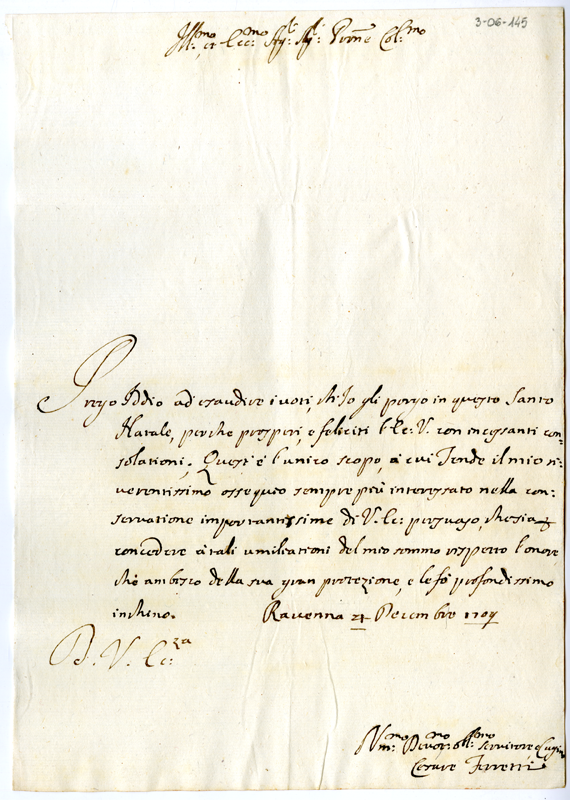 3-06-145
Ill:mo et Ecc:mo Sig:r Sig:r Prone Col:mo
Prego Iddio ad esaudire i voti, ch'Io gli porgo in questo Santo
Natale, perche prosperi, e feliciti l'Ec: V. con incessanti con:
solationi. Quest'è l'unico scopo, à cui Tende il mio ri:
verentissimo ossequio sempre più interessato nella con:
servatione importantissime di V. Ec: persuaso, che sia
concedere à tali umiliationi del mio sommo rispetto l'onore
che ambisco della sua gran protezione, e le fò profondissimo
inchino. Ravenna 21 Decembre 1709
D. V. Ec:za
Um:mo Devot:mo Obl:mo Servitore e Cugin
Cesare Ferretti